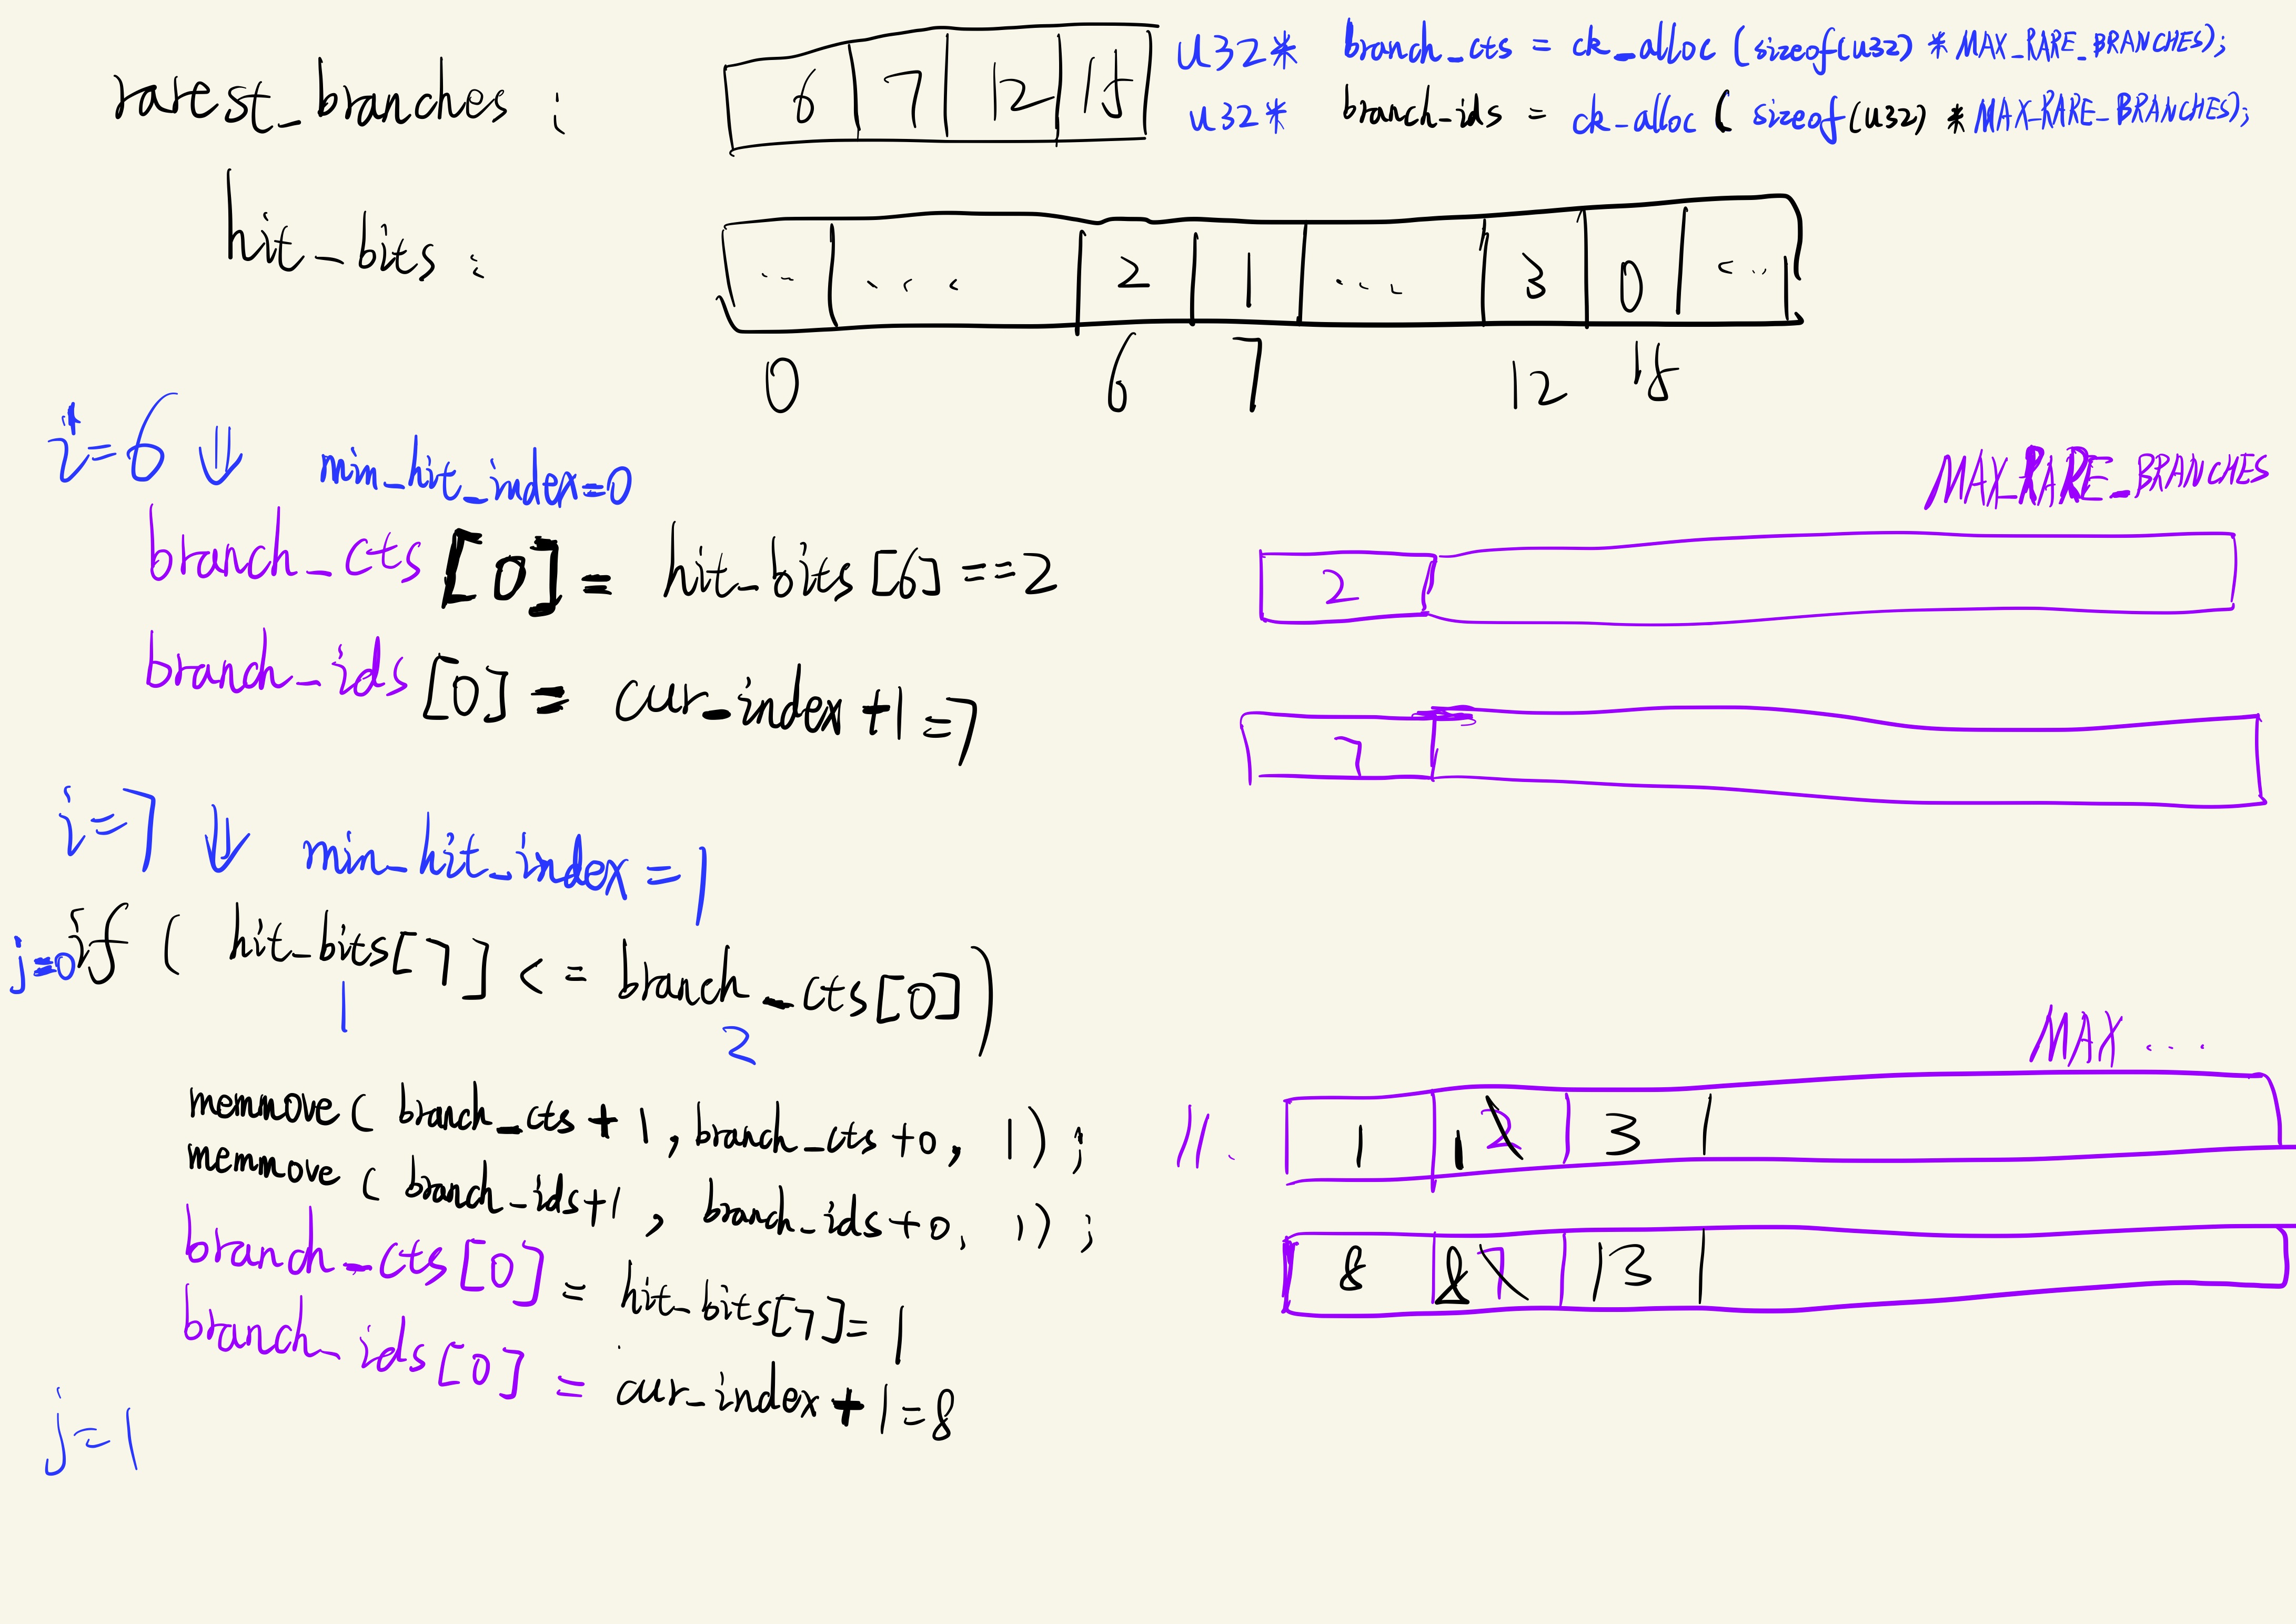 rarest_branches :
6 7 12 15
u32* branch_cts = ck_alloc (sizeof(u32) * MAX_RARE_BRANCHES);
u32* branch_ids = ck_alloc ( sizeof(u32) * MAX_RARE_BRANCHES);
hit_bits :
... ... 2 1 ... 3 0 ...
0 6 7 12 15
i=6 ⇓ min_hit_index=0
MAX_RARE_BRANCHES
branch_cts [0] = hit_bits [6] ==2
2
branch_ids [0] = cur_index+1=7
7
i=7 ⇓ min_hit_index=1
j=0 if ( hit_bits[7] <= branch_cts[0])
1 2
MAX ...
memmove( branch_cts+1, branch_cts+0, 1);
1 1 2 3
memmove ( branch_ids+1, branch_ids+0, 1);
8 8 7 13
branch_cts[0] = hit_bits[7]=1
branch_ids[0] = cur_index+1=8
j=1